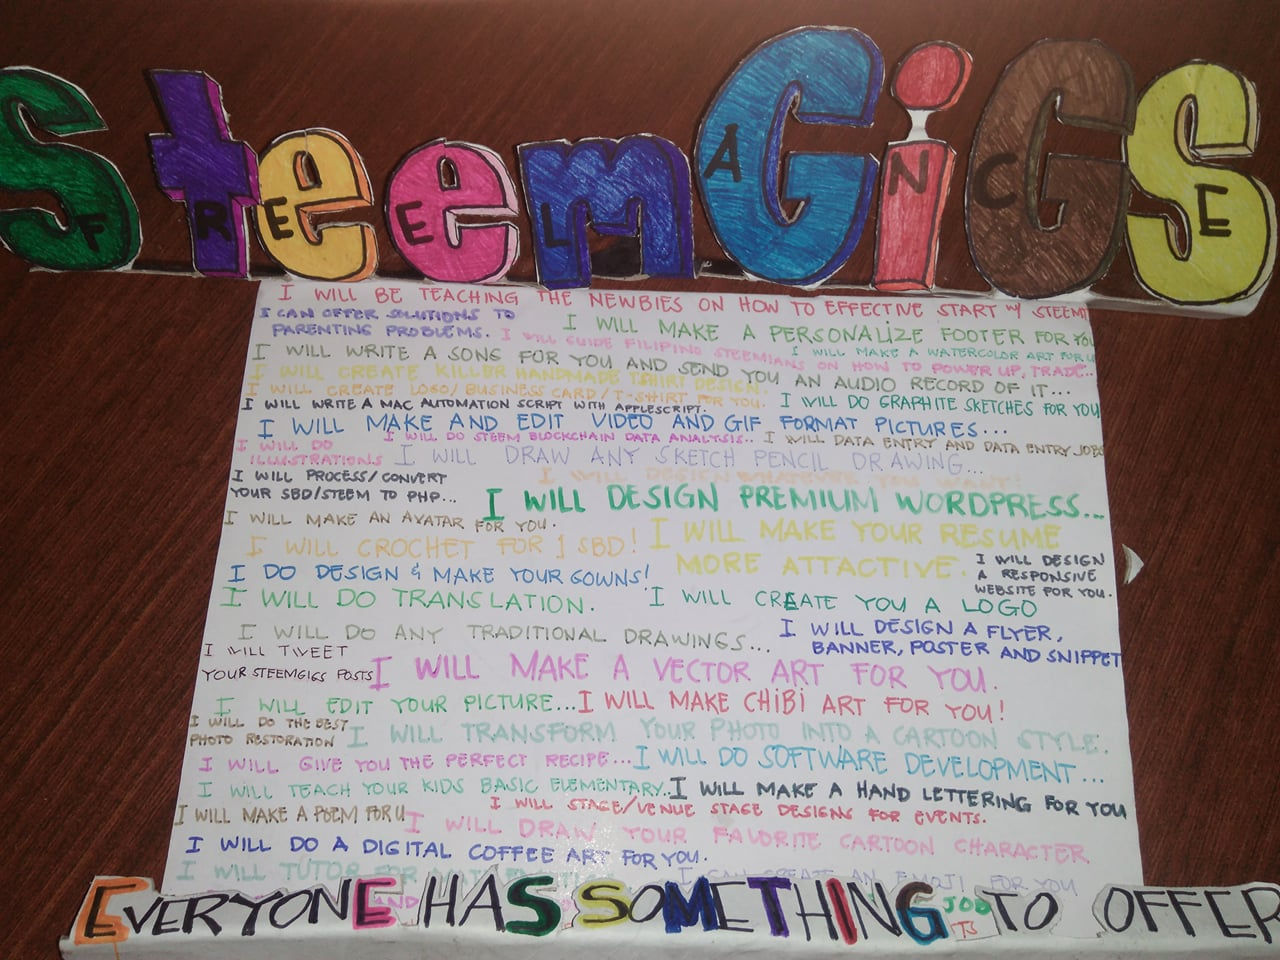 SteemGiGS
FREELANCE
I WILL BE TEACHING THE NEWBIES ON HOW TO EFFECTIVE START W/ STEEMIT
I CAN OFFER SOLUTIONS TO PARENTING PROBLEMS.
I WILL MAKE A PERSONALIZE FOOTER FOR YOU
I WILL GUIDE FILIPINO STEEMIANS ON HOW TO POWER UP, TRADE..
I WILL MAKE A WATERCOLOR ART FOR U
I WILL WRITE A SONG FOR YOU AND SEND YOU AN AUDIO RECORD OF IT...
I WILL CREATE KILLER HANDMADE TSHIRT DESIGN.
I WILL CREATE LOGO/BUSINESS CARD/T-SHIRT FOR YOU.
I WILL DO GRAPHITE SKETCHES FOR YOU
I WILL WRITE A MAC AUTOMATION SCRIPT WITH APPLESCRIPT.
I WILL MAKE AND EDIT VIDEO AND GIF FORMAT PICTURES...
I WILL DO ILLUSTRATIONS
I WILL DO STEEM BLOCKCHAIN DATA ANALYSIS..
I WILL DATA ENTRY AND DATA ENTRY JOBS
I WILL DRAW ANY SKETCH PENCIL DRAWING...
I WILL PROCESS/CONVERT YOUR SBD/STEEM TO PHP...
I WILL DESIGN WHATEVER YOU WANT!
I WILL DESIGN PREMIUM WORDPRESS...
I WILL MAKE AN AVATAR FOR YOU.
I WILL MAKE YOUR RESUME MORE ATTACTIVE.
I WILL CROCHET FOR 1 SBD!
I WILL DESIGN A RESPONSIVE WEBSITE FOR YOU.
I DO DESIGN & MAKE YOUR GOWNS!
I WILL DO TRANSLATION.
I WILL CREATE YOU A LOGO
I WILL DO ANY TRADITIONAL DRAWINGS...
I WILL DESIGN A FLYER, BANNER, POSTER AND SNIPPET
I WILL TWEET YOUR STEEMGIGS POSTS
I WILL MAKE A VECTOR ART FOR YOU.
I WILL EDIT YOUR PICTURE...
I WILL MAKE CHiBi ART FOR YOU!
I WILL DO THE BEST PHOTO RESTORATION
I WILL TRANSFORM YOUR PHOTO INTO A CARTOON STYLE.
I WILL GIVE YOU THE PERFECT RECIPE...
I WILL DO SOFTWARE DEVELOPMENT...
I WILL TEACH YOUR KIDS BASIC ELEMENTARY..
I WILL MAKE A HAND LETTERING FOR YOU
I WILL MAKE A POEM FOR U
I WILL STAGE/VENUE STAGE DESIGNS FOR EVENTS.
I WILL DRAW YOUR FAVORITE CARTOON CHARACTER
I WILL DO A DIGITAL COFFEE ART FOR YOU.
I WILL TUTOR FOR
I CAN CREATE AN EMOJI FOR YOU
EVERYONE HAS SOMETHING TO OFFER